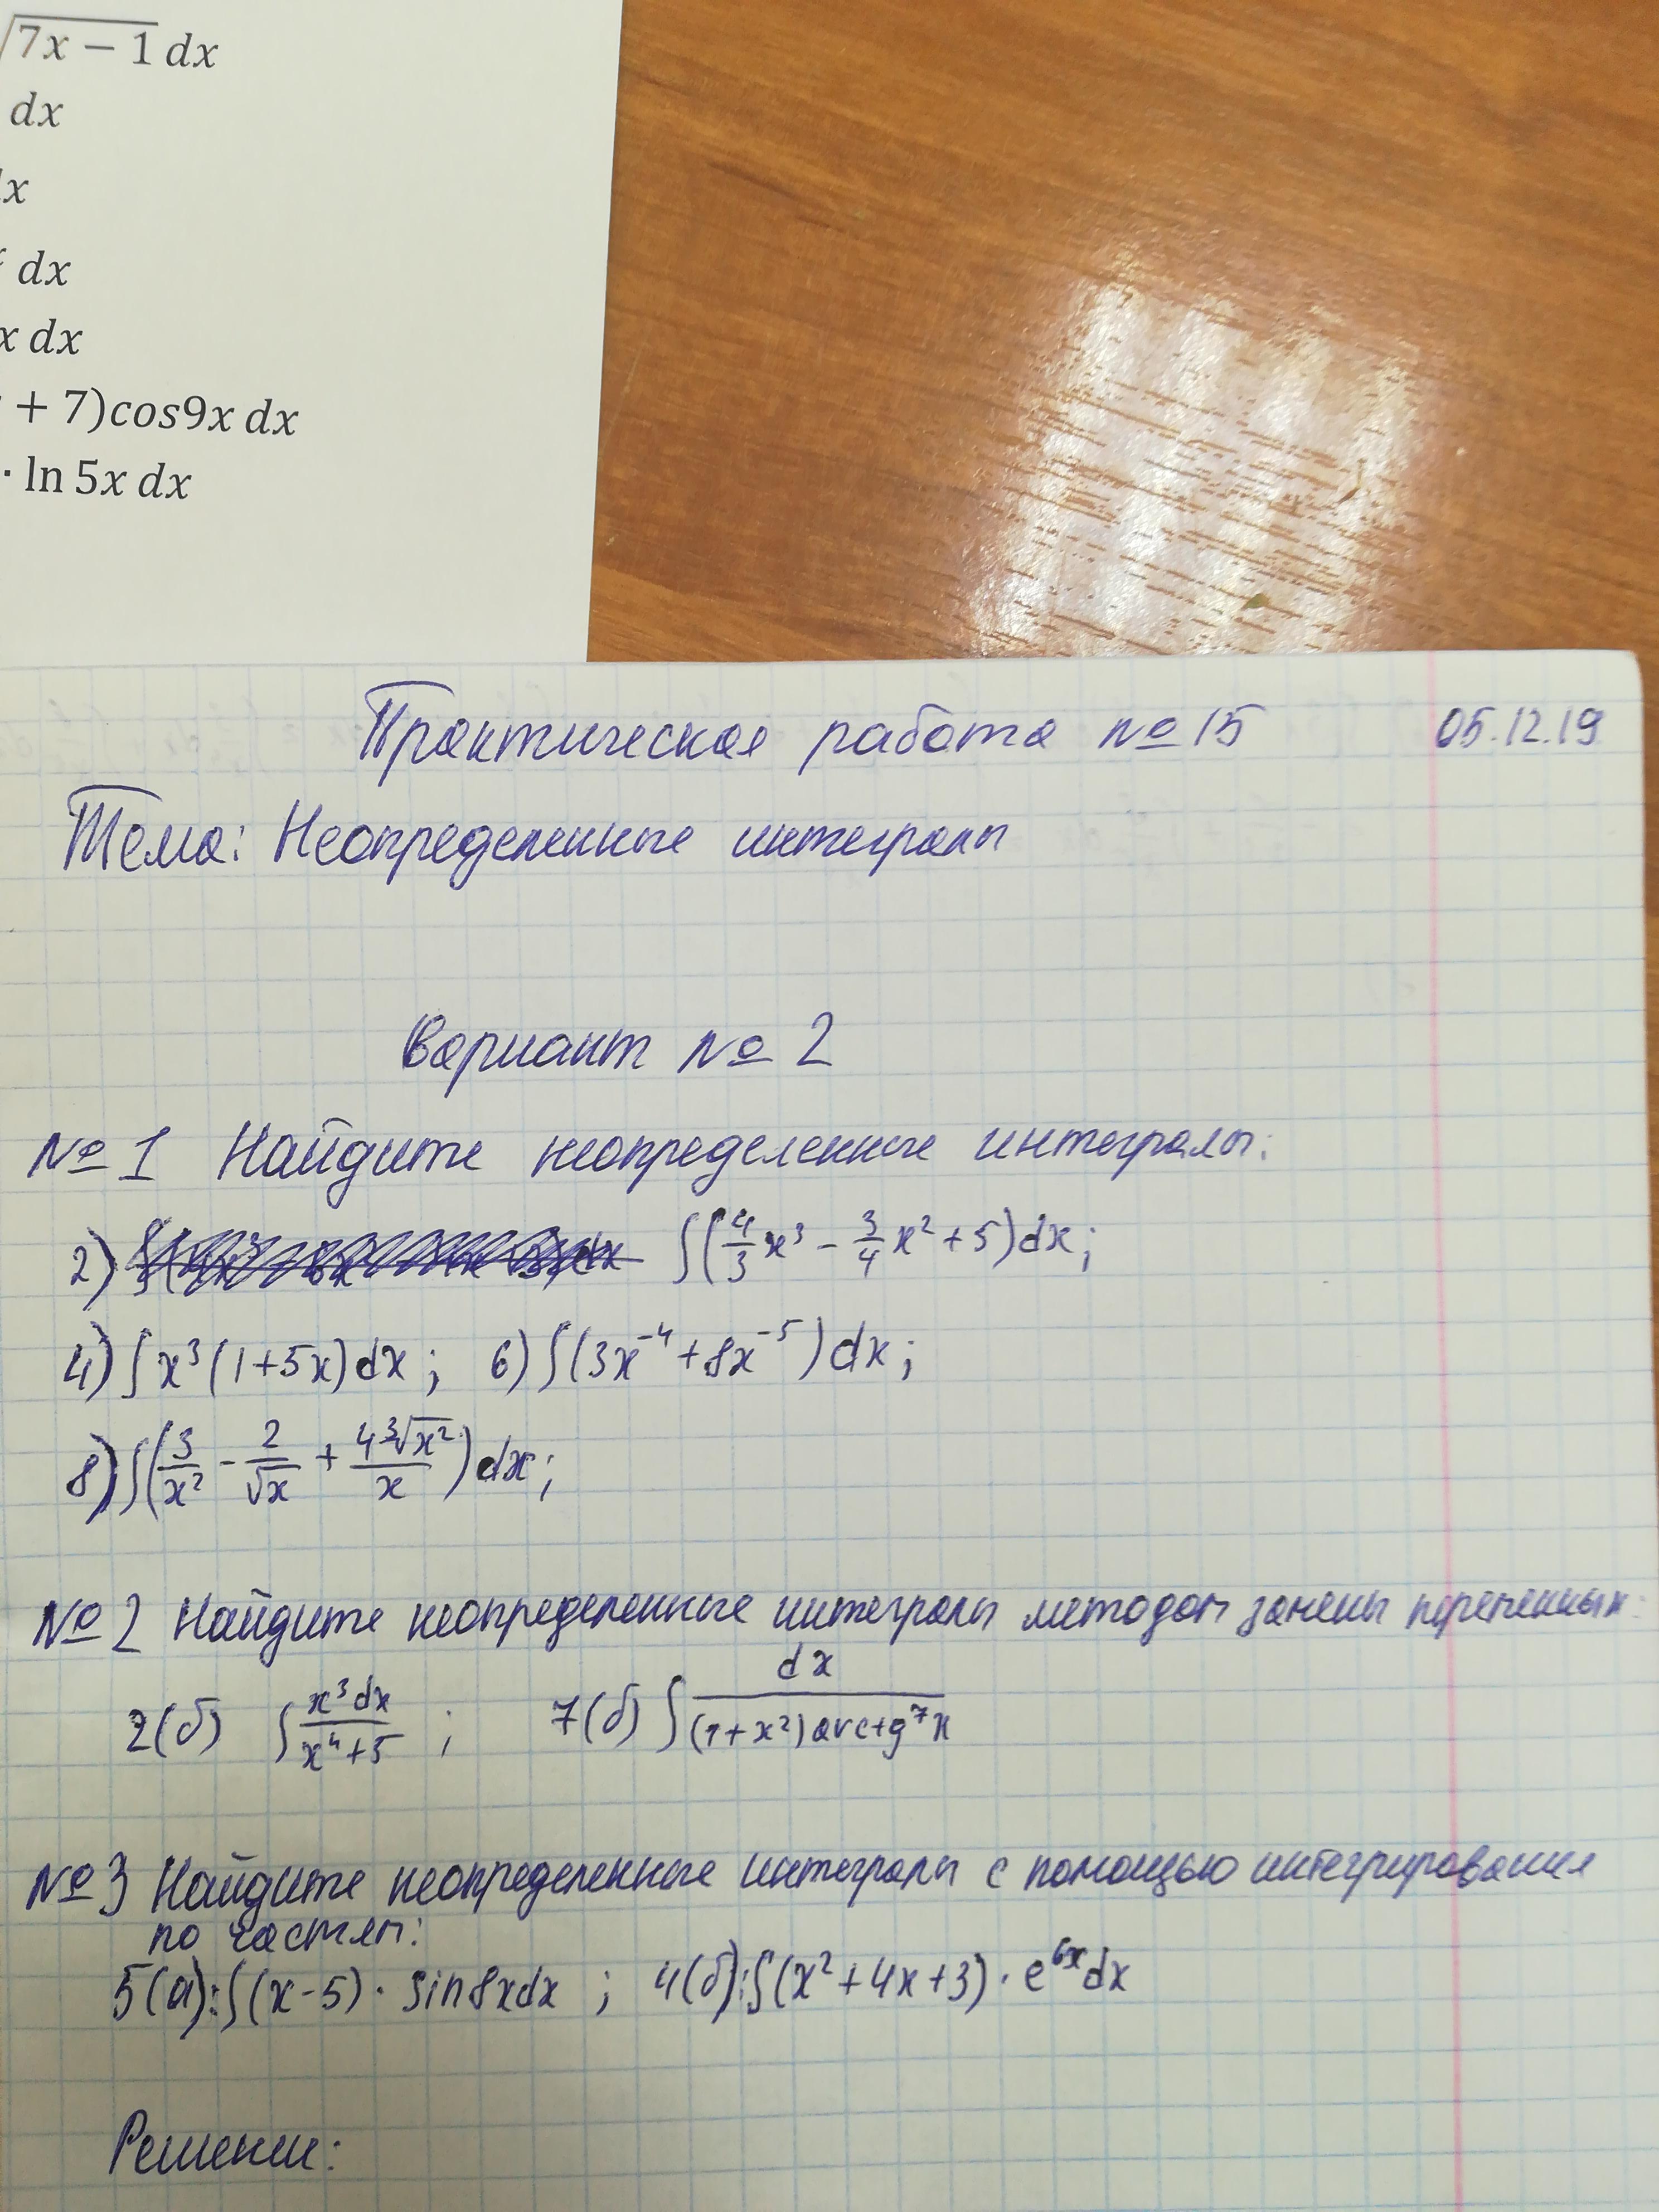 √7x − 1 dx
dx
dx
dx
x dx
+ 7)cos9x dx
· ln 5x dx
Практическая работа №15 05.12.19
Тема: Неопределенные интегралы
Вариант №2
№1 Найдите неопределенные интегралы:
2) ∫(4/3 x³ − 3/4 x² + 5)dx;
4) ∫x³(1+5x)dx; 6) ∫(3x⁻⁴ + 8x⁻⁵)dx;
8) ∫(3/x² − 2/√x + 4∛x²/x)dx;
№2 Найдите неопределенные интегралы методом замены переменных:
2(б) ∫ x³dx/x⁴+5 ; 7(б) ∫ dx/(1+x²)arctg⁷x
№3 Найдите неопределенные интегралы с помощью интегрирования
по частям:
5(а): ∫(x−5)·sin8xdx ; 4(б): ∫(x²+4x+3)·e⁶ˣdx
Решение: